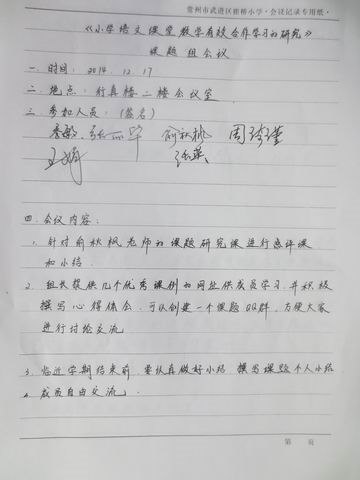 常州市武进区崔桥小学·会议记录专用纸·
《小学语文课堂教学有效合作学习的研究》
课题组会议
一. 时间: 2014. 12. 17
二. 地点: 行真楼二楼会议室
三. 参加人员: (签名)
俞秋枫 周
王娟
四. 会议内容:
1. 针对俞秋枫老师的课题研究课进行点评课
和小结.
2. 组长提供几个优秀课例的网址供成员学习,并积极
撰写心得体会,可以创建一个课题QQ群,方便大家
进行讨论交流
3. 临近学期结束前,要认真做好小结,撰写课题个人小结.
4. 成员自由交流.
第 页